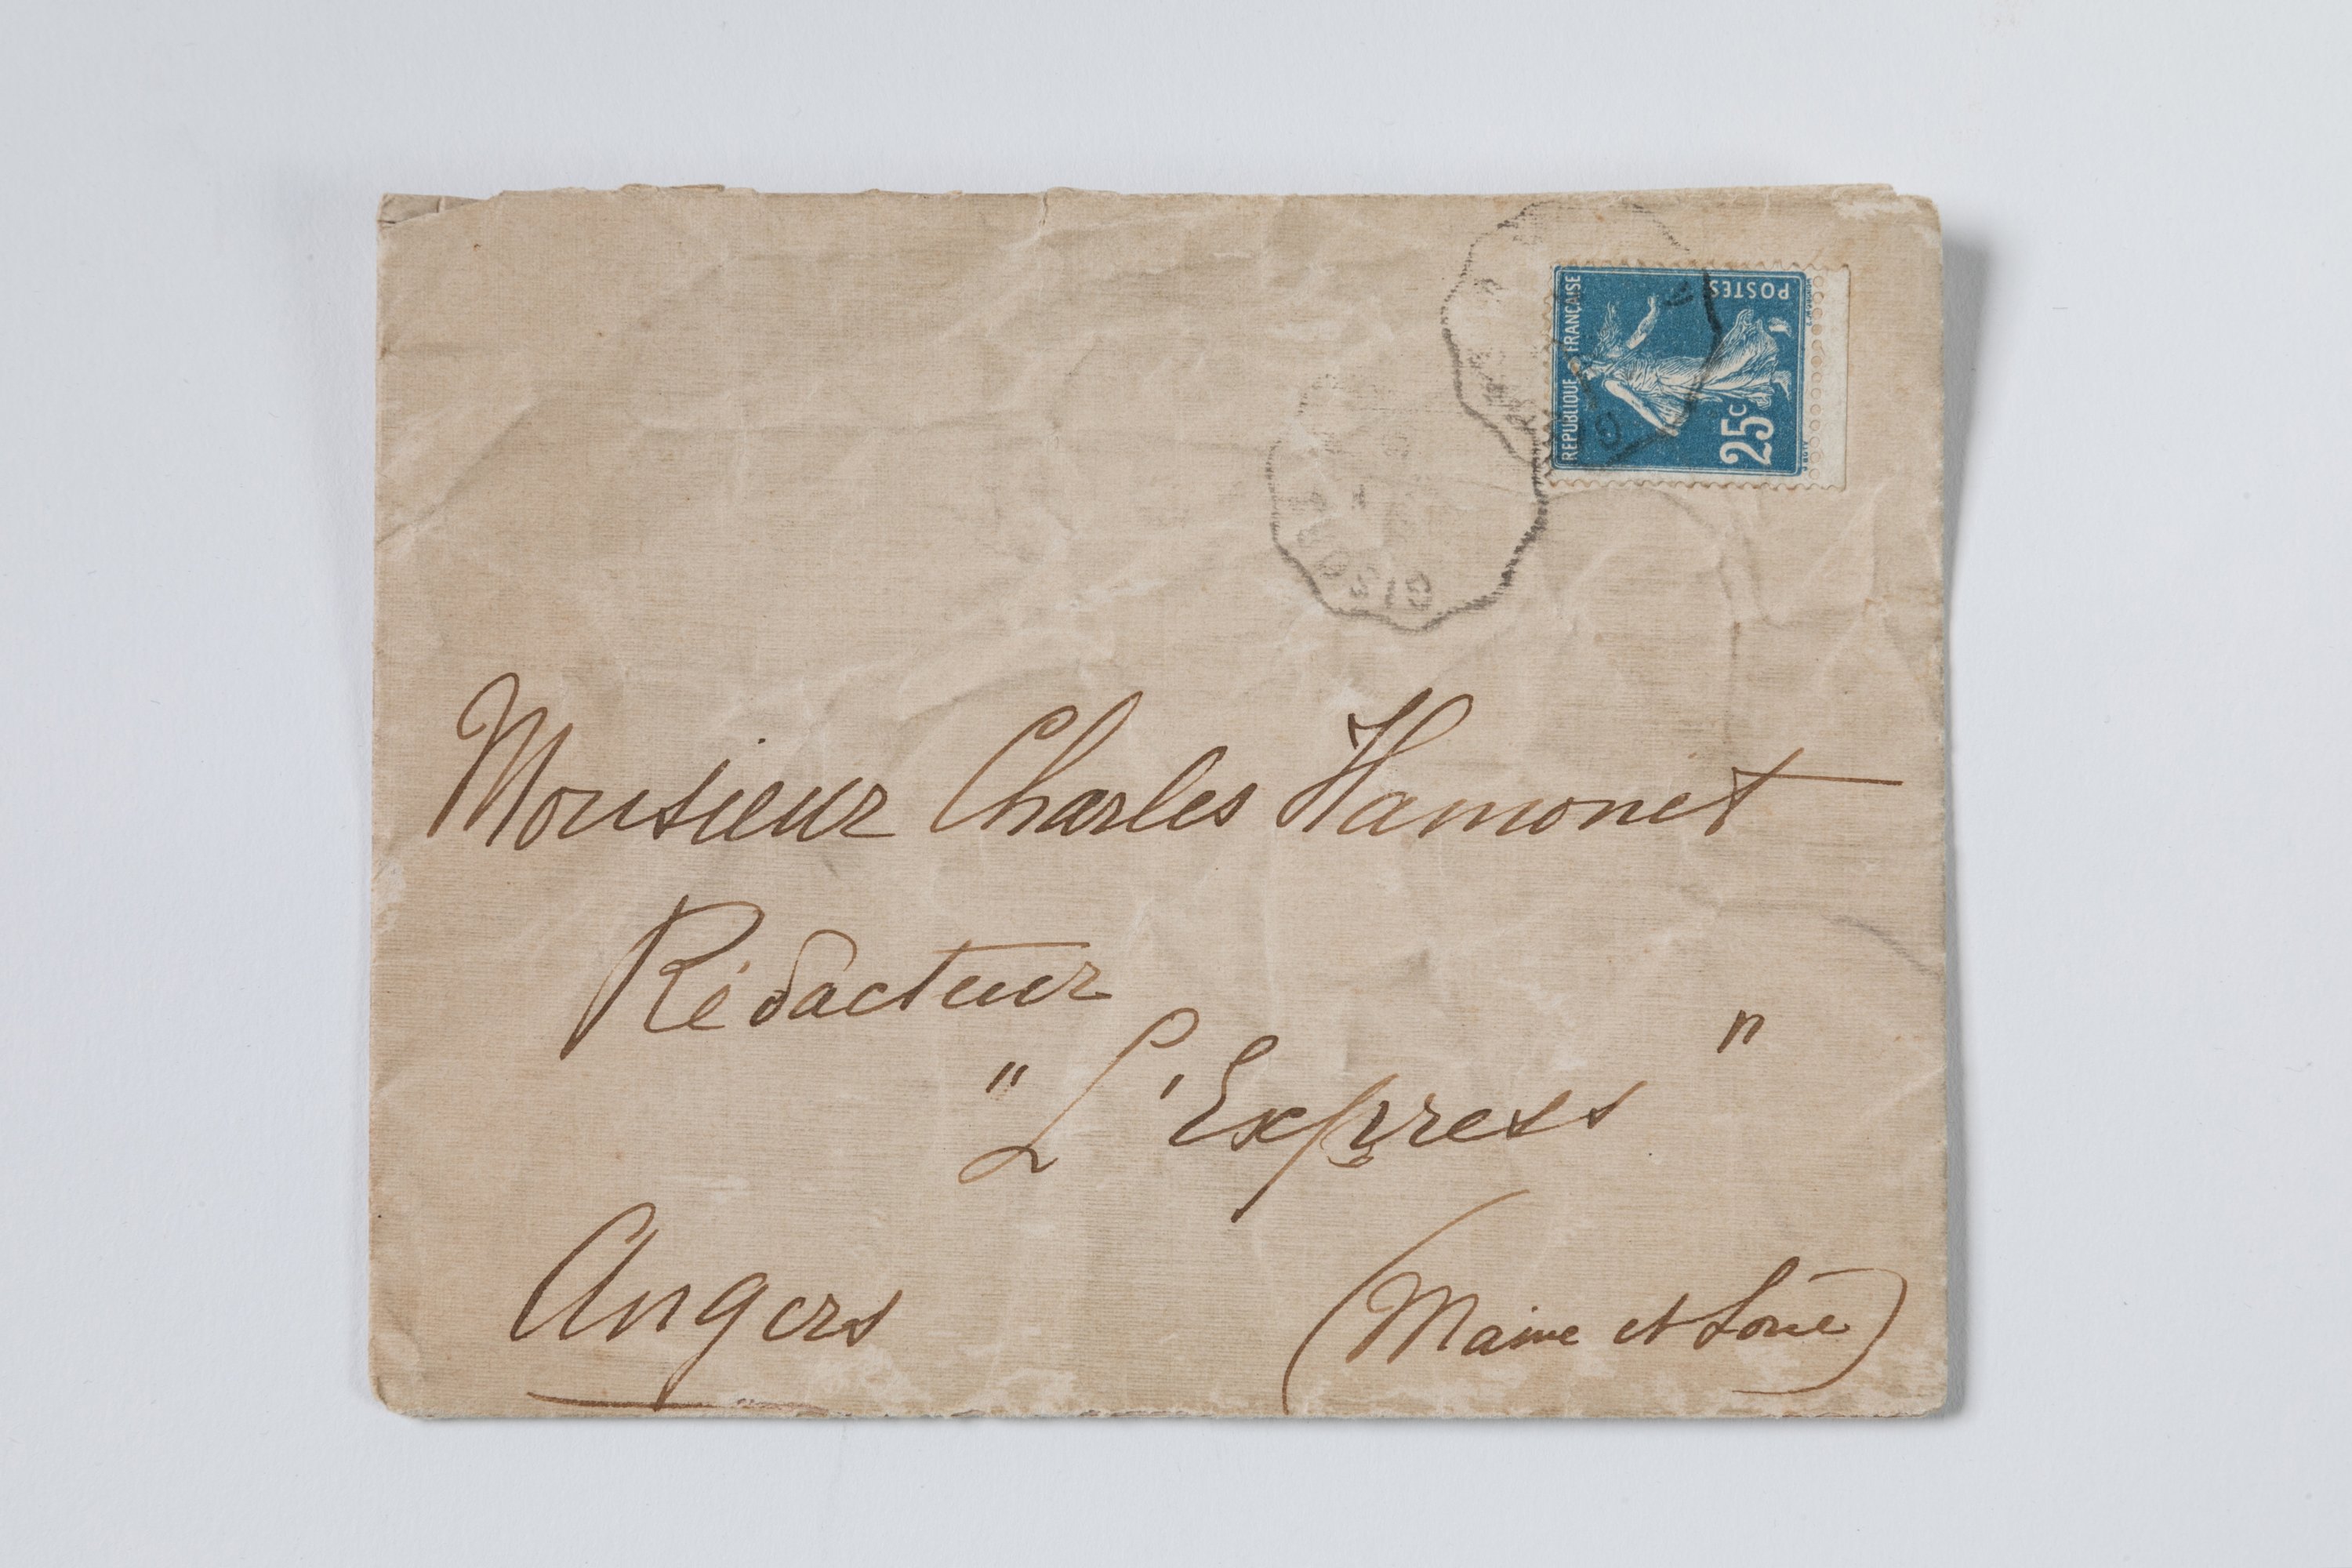 REPUBLIQUE FRANÇAISE
POSTES
25c
Monsieur Charles Hamonet
Rédacteur
"L'Express"
Angers
(Maine et Loire)